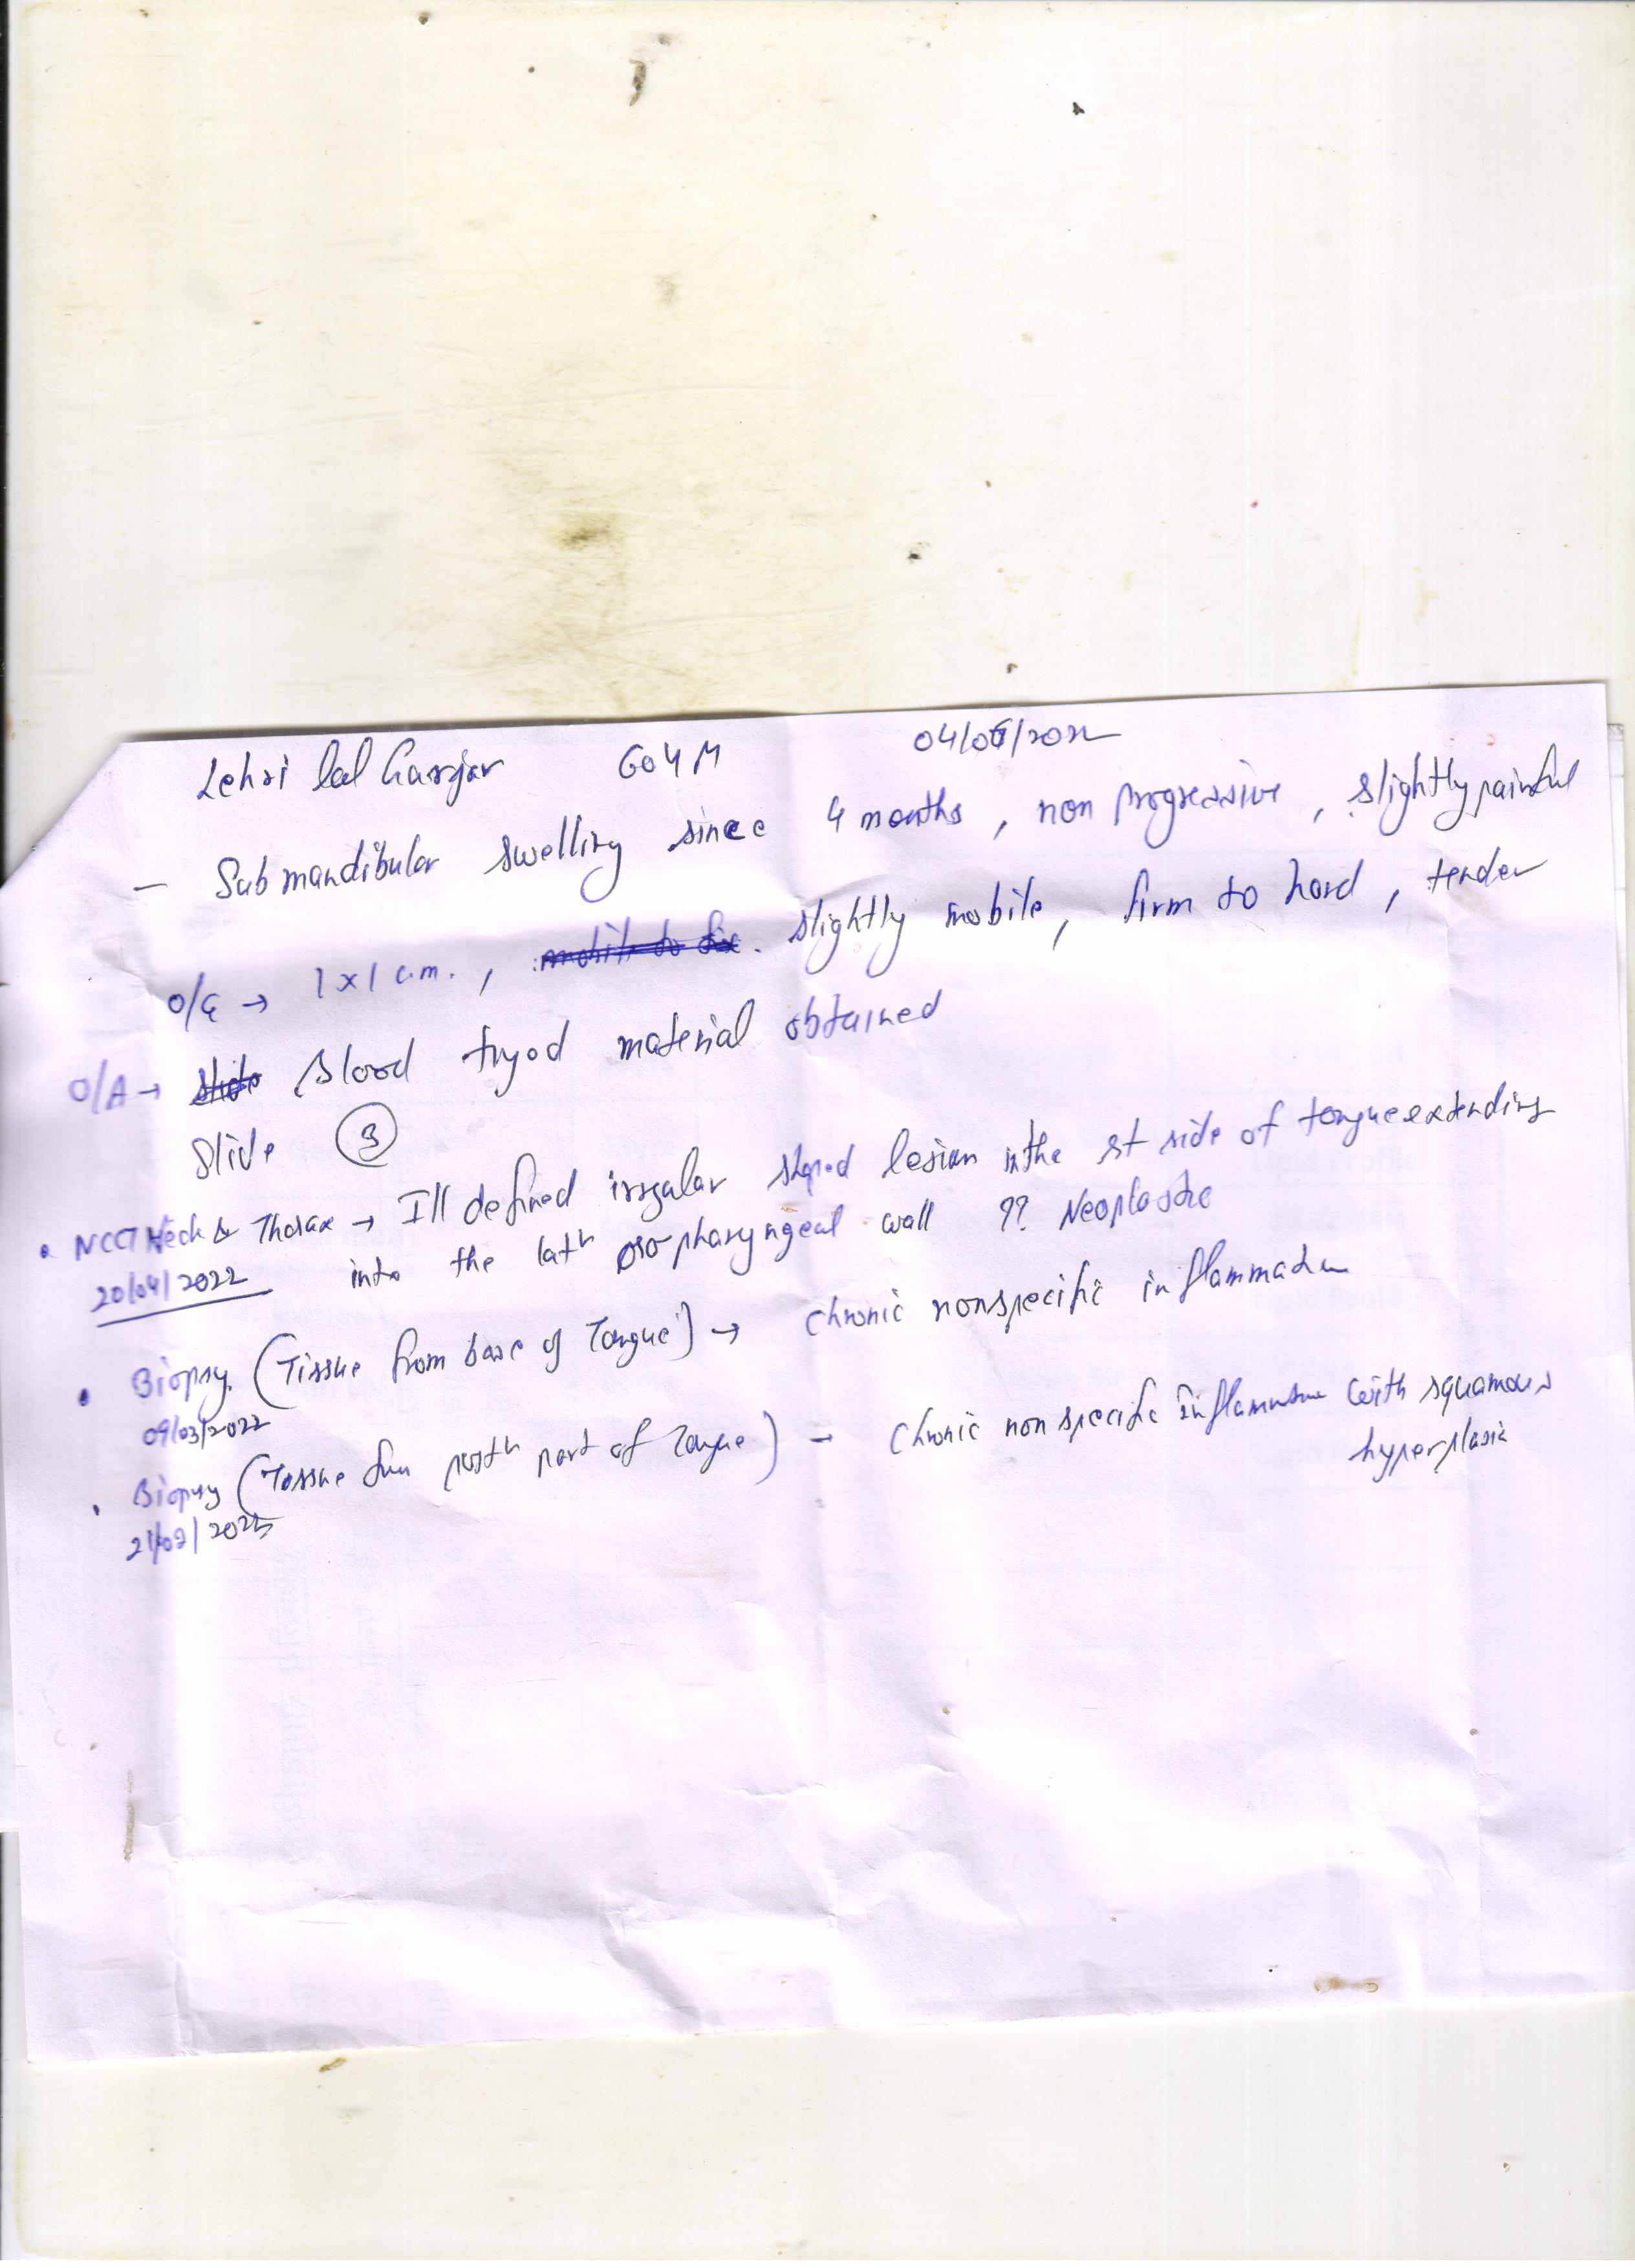 Lehri lal Gurjar 60 y M 04/05/2022
– Submandibular swelling since 4 months, non progressive, slightly painful
O/E → 1x1 cm., slightly mobile, firm to hard, tender
O/A → Blood tinged material obtained
Slide ③
• NCCT Neck & Thorax → Ill defined irregular shaped lesion in the rt side of tongue extending
20/04/2022 into the latr oropharyngeal wall ?? Neoplastic
• Biopsy (Tissue from base of Tongue) → Chronic nonspecific inflammation
09/03/2022
• Biopsy (Tissue from postr part of Tongue) – Chronic non specific Inflammation with squamous
hyperplasia
21/02/2022